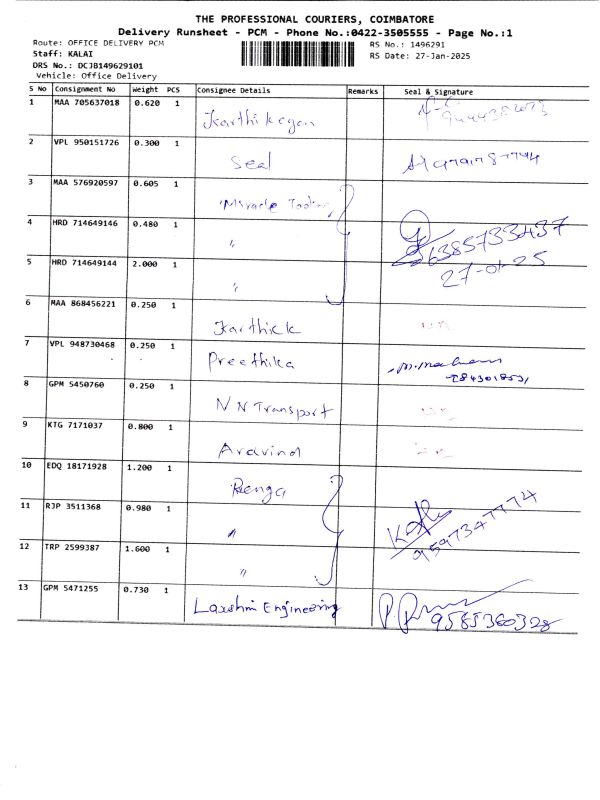 THE PROFESSIONAL COURIERS, COIMBATORE
Delivery Runsheet - PCM - Phone No.:0422-3505555 - Page No.:1
Route: OFFICE DELIVERY PCM RS No.: 1496291
Staff: KALAI RS Date: 27-Jan-2025
DRS No.: DCJB149629101
Vehicle: Office Delivery
S No Consignment No Weight PCS Consignee Details Remarks Seal & Signature
1 MAA 705637018 0.620 1 Karthikeyan
2 VPL 950151726 0.300 1 Seal
3 MAA 576920597 0.605 1 Miracle
4 HRD 714649146 0.480 1 " 6385733437
27-01-25
5 HRD 714649144 2.000 1 "
6 MAA 868456221 0.250 1 Karthick
7 VPL 948730468 0.250 1 Preethika
8 GPM 5450760 0.250 1 NN Transport
9 KTG 7171037 0.800 1 Aravind
10 EDQ 18171928 1.200 1 Renga
11 RJP 3511368 0.980 1 " 9597347774
12 TRP 2599387 1.600 1 "
13 GPM 5471255 0.730 1 Laxshmi Engineering 9585360328